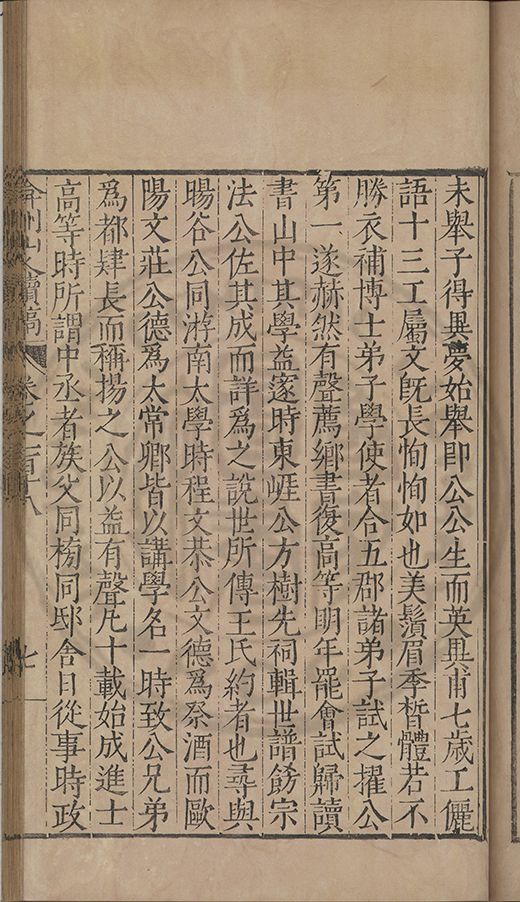 未舉子得異夢始舉即公公生而英異甫七歲工儷
語十三工屬文既長恂恂如也美鬚眉季皙體若不
勝衣補博士弟子學使者合五郡諸弟子試之擢公
第一遂赫然有聲薦鄉書復高等明年罷會試歸讀
書山中其學益邃時東崕公方樹先祠輯世譜飭宗
法公佐其成而詳爲之說世所傳王氏約者也尋與
暘谷公同游南太學時程文恭公文德爲祭酒而歐
陽文莊公德爲太常卿皆以講學名一時致公兄弟
爲都肄長而稱揚之公以益有聲凡十載始成進士
高等時所謂中丞者族父同榜同邸舍日從事時政
弇州山人續稿 卷之一百十八 七